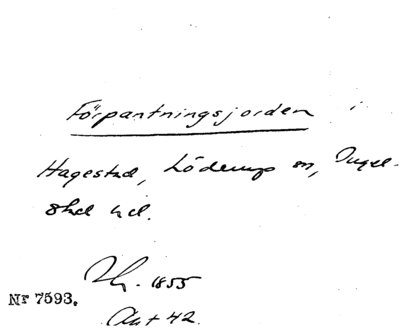 Förpantningsjorden i
Hagestad, Löderups sn, Ingel-
stad hd.
1855
Nr 7593.
Akt 42.